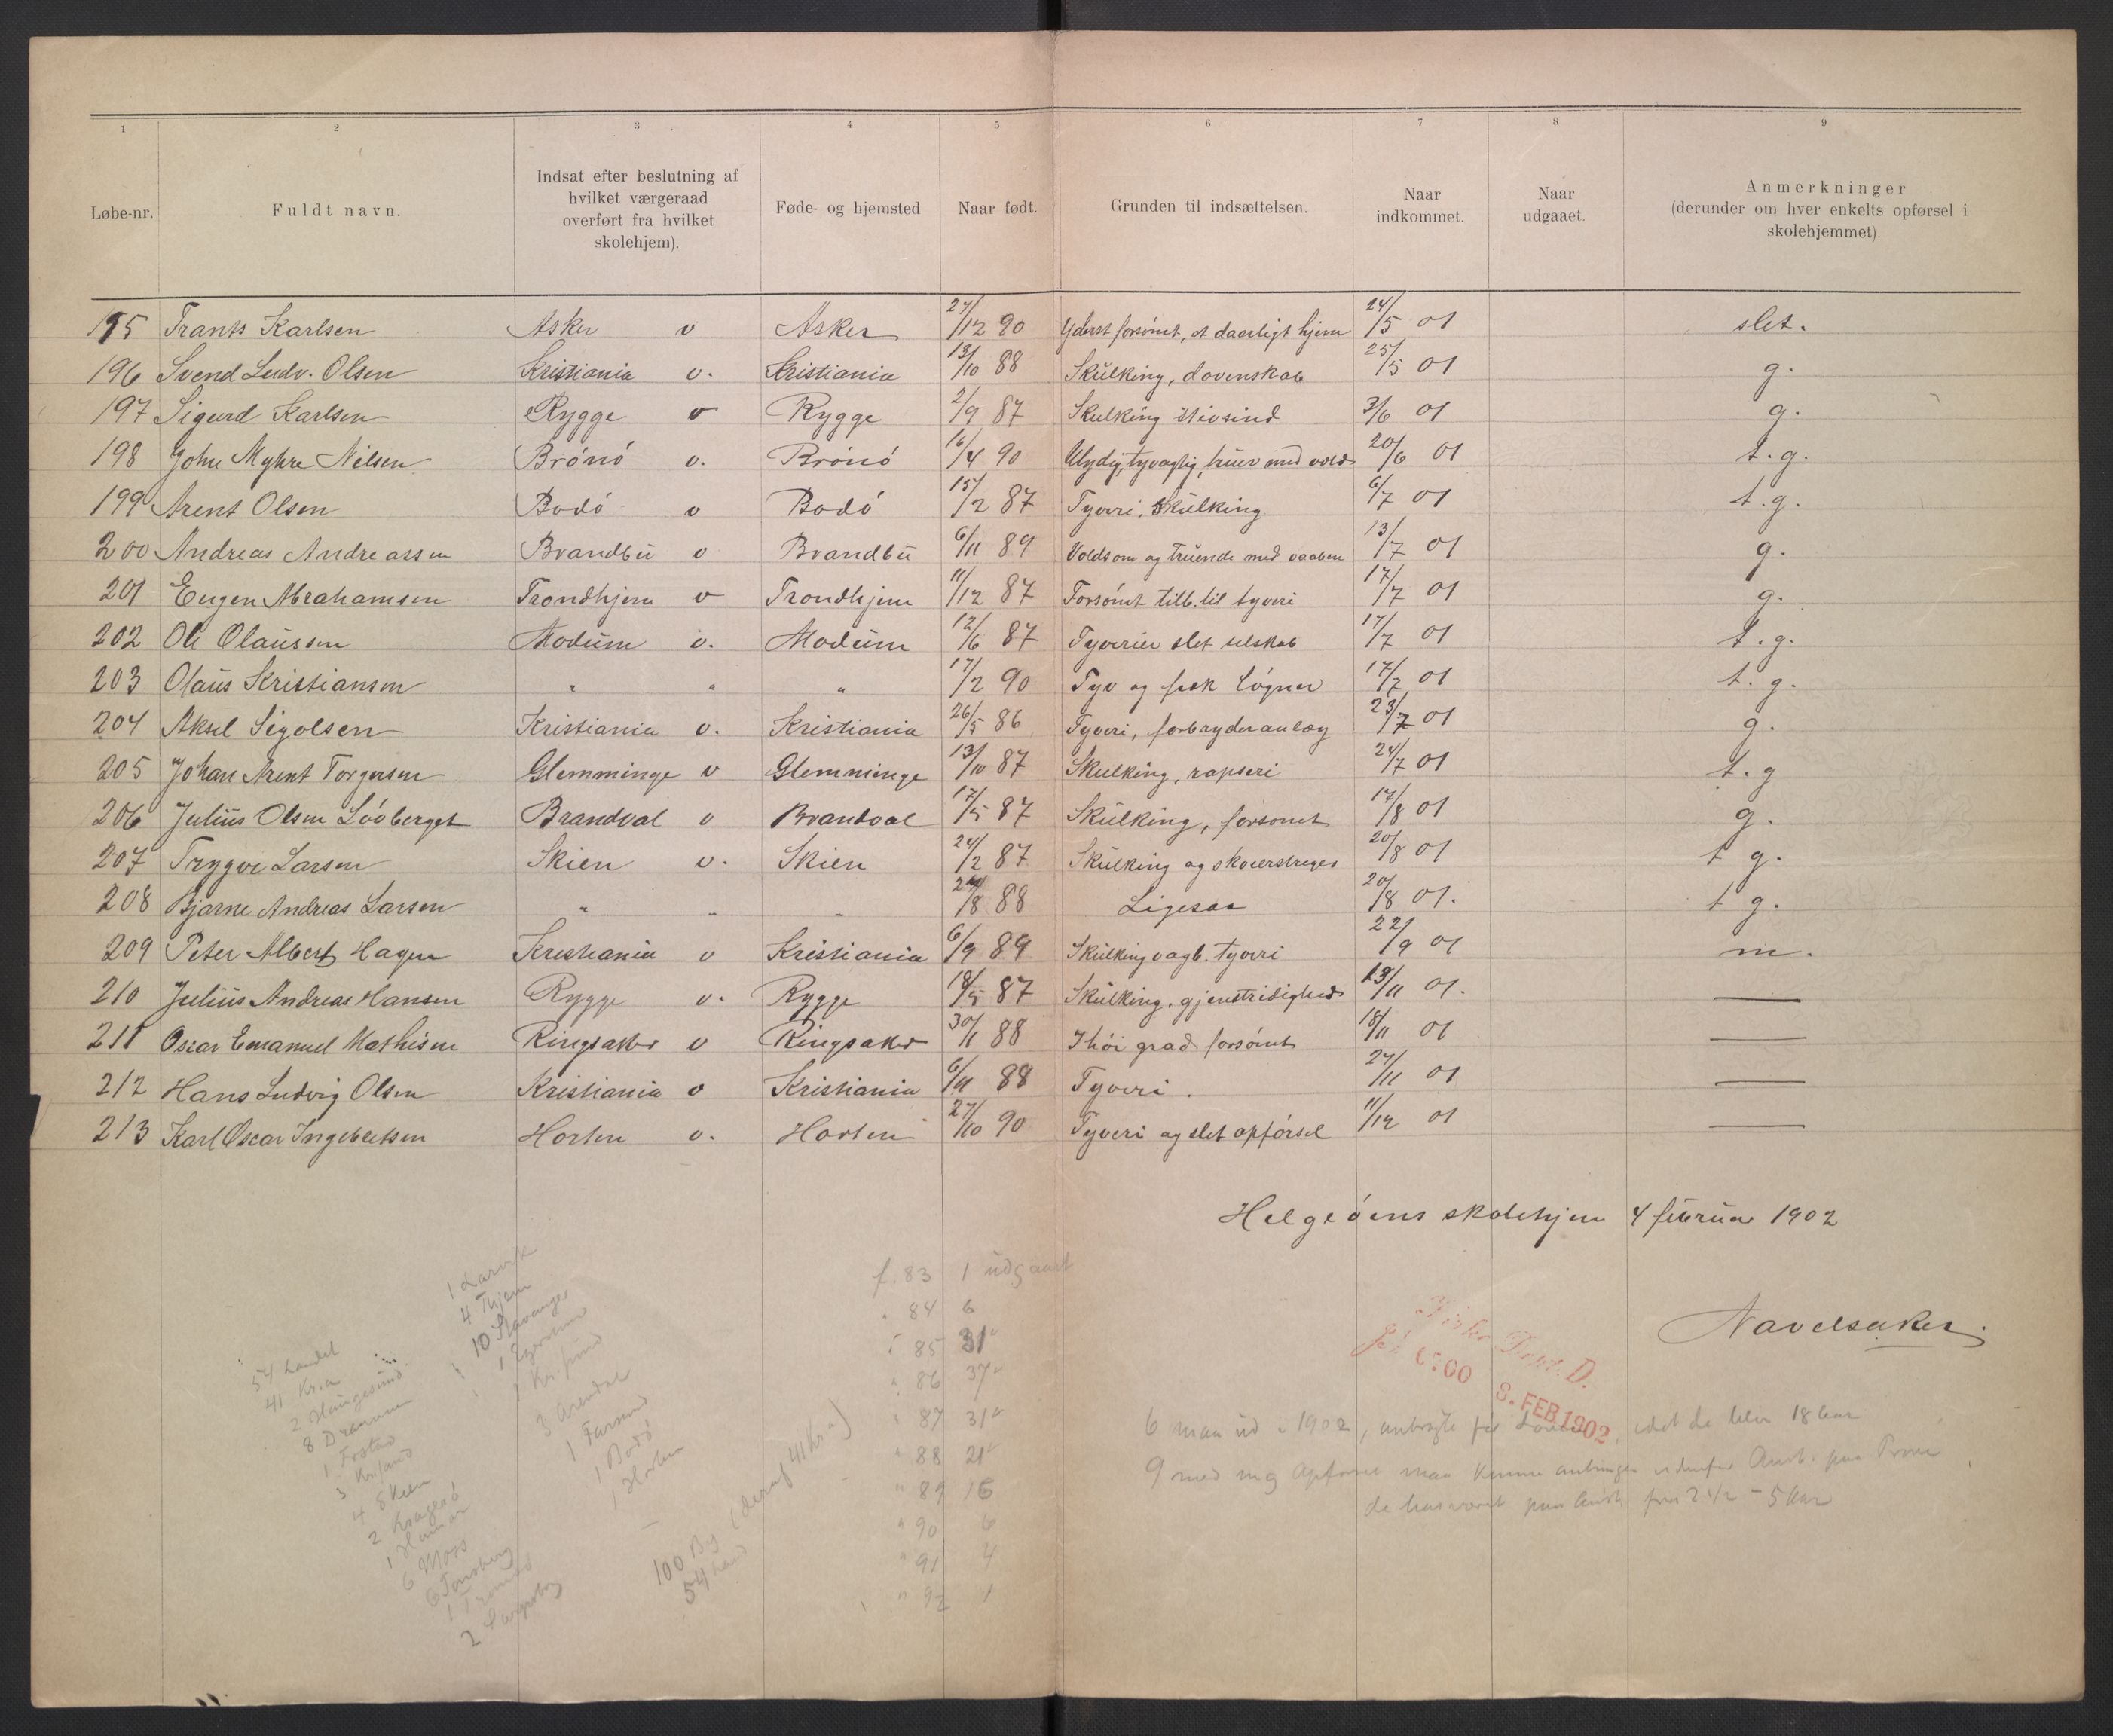 1 2 3 4 5 6 7 8 9
Løbe-nr. Fuldt navn. Indsat efter beslutning af hvilket værgeraad overført fra hvilket skolehjem). Føde- og hjemsted Naar født. Grunden til indsættelsen. Naar indkommet. Naar udgaaet. Anmerkninger (derunder om hver enkelts opførsel i skolehjemmet).
195 Frants Karlsen Asker v Asker 27/12 90 Yderst forsømt, et daarligt hjem 24/5 01 slet.
196 Svend Ludv. Olsen Kristiania v. Kristiania 13/10 88 Skulking, dovenskab 25/5 01 g.
197 Sigurd Karlsen Rygge v Rygge 2/9 87 Skulking stivsind 3/6 01 g.
198 John Myhre Nilsen Brönö v. Brönö 16/4 90 Ulydig, tyvagtig, truer med vold 20/6 01 t.g.
199 Arent Olsen Bodö v Bodö 15/2 87 Tyveri, Skulking 6/7 01 t.g.
200 Andreas Andreassen Brandbu v Brandbu 6/11 89 Voldsom og truende med vaaben 13/7 01 g.
201 Eugen Abrahamsen Trondhjem v Trondhjem 11/12 87 Forsömt tilb. til tyveri 17/7 01 g.
202 Ole Olaussen Modum v. Modum 12/6 87 Tyverier slet selskab 17/7 01 t.g.
203 Olaus Kristiansen " " " 17/2 90 Tyv og fræk Lögner 17/7 01 t.g.
204 Aksel Sigolsen Kristiania v. Kristiania 26/5 86 Tyveri, forbryderanlæg 23/7 01 g.
205 Johan Arent Torgersen Glemminge v Glemminge 13/10 87 Skulking, rapseri 24/7 01 t.g
206 Julius Olsen Lövberget Brandval v Brandval 17/5 87 Skulking, forsömt 17/8 01 g.
207 Trygve Larsen Skien v. Skien 24/2 87 Skulking og skoierstreger 20/8 01 t g.
208 Bjarne Andreas Larsen " " " /8 88 Ligesaa 20/8 01. t g.
209 Peter Albert Hagen Kristiania v Kristiania 6/9 89 Skulking vagb. tyveri 22/9 01 m.
210 Julius Andreas Hansen Rygge v. Rygge 18/5 87 Skulking, gjenstridighed 13/11 01. —
211 Oscar Emanuel Mathisen Ringsaker v Ringsaker 30/1 88 I höi grad forsömt 18/11 01 —
212 Hans Ludvig Olsen Kristiania v Kristiania 6/11 88 Tyveri. 27/11 01 —
213 Karl Oscar Ingebretsen Horten v. Horten 27/10 90 Tyveri og slet opförsel 11/12 01 —
Helgeöens skolehjem 4 februar 1902
Navelsaker.
Kirke Dept. D.
8. FEB 1902
f. 83 1 udgaaet
" 84 6
" 85 31
" 86 37
" 87 31
" 88 21
" 89 16
" 90 6
" 91 4
" 92 1
54 Landet
41 Kr.a
2 Haugesund
8 Drammen
1 Fr.stad
3 Kr.sand
4 Skien
2 Kragerö
1 Hamar
6 Moss
Tönsberg
1 Tromsö
2 Sarpsborg
1 Larvik
4 Thjem
10 Stavanger
1 Egersund
1 Kr.sund
3 Arendal
1 Farsund
1 Bodö
1 Horten
100 By (deraf 41 Kr.a)
54 Land
6 maa ud i 1902, idet de bliver 18 Aar
9 med mg Opförsel maa kunne anbringes udenfor Anst. paa Pröve
de har været paa Anst. fra 2 1/2 – 5 Aar